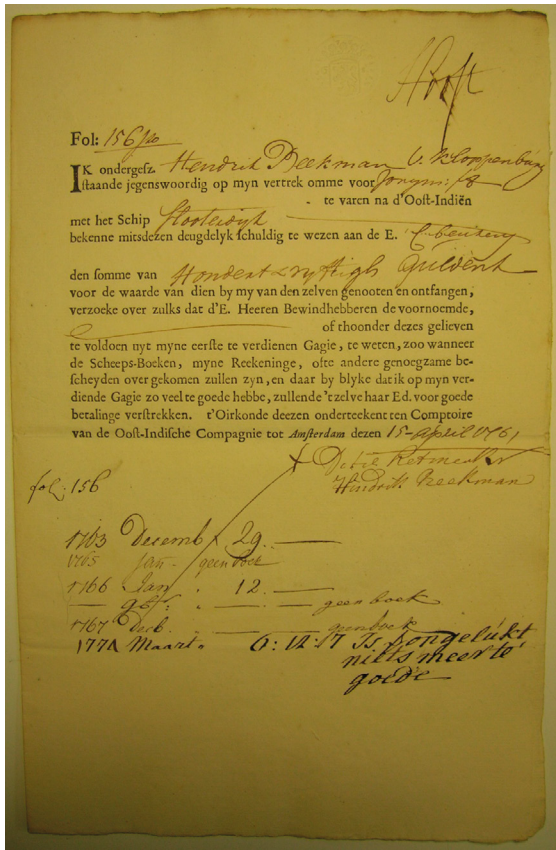 Hooft
Fol: 156
IK ondergesz. Hendrik Beekman v. kloppenburg
staande jegenswoordig op myn vertrek omme voor Jongm:
te varen na d'Oost-Indiën
met het Schip Slooterdyk
bekenne mitsdezen deugdelyk schuldig te wezen aan de E.
den somme van Hondert &
voor de waarde van dien by my van den zelven genooten en ontfangen,
verzoeke over zulks dat d'E. Heeren Bewindhebberen de voornoemde,
of thoonder dezes gelieven
te voldoen uyt myne eerste te verdienen Gagie, te weten, zoo wanneer
de Scheeps-Boeken, myne Reekeninge, ofte andere genoegzame be-
scheyden over gekomen zullen zyn, en daar by blyke dat ik op myn ver-
diende Gagie zo veel te goede hebbe, zullende 't zelve haar Ed. voor goede
betalinge verstrekken. t'Oirkonde deezen onderteekent ten Comptoire
van de Oost-Indische Compagnie tot Amsterdam dezen 15 april 1761
Hindrik Beekman
fol: 156
1763 Decemb 29.
1765 Jan geen boek
1766 Jan 12
geen boek
1767 geen boek
1771 Maart 6:12:17 Is verongelukt
niets meer te
goede